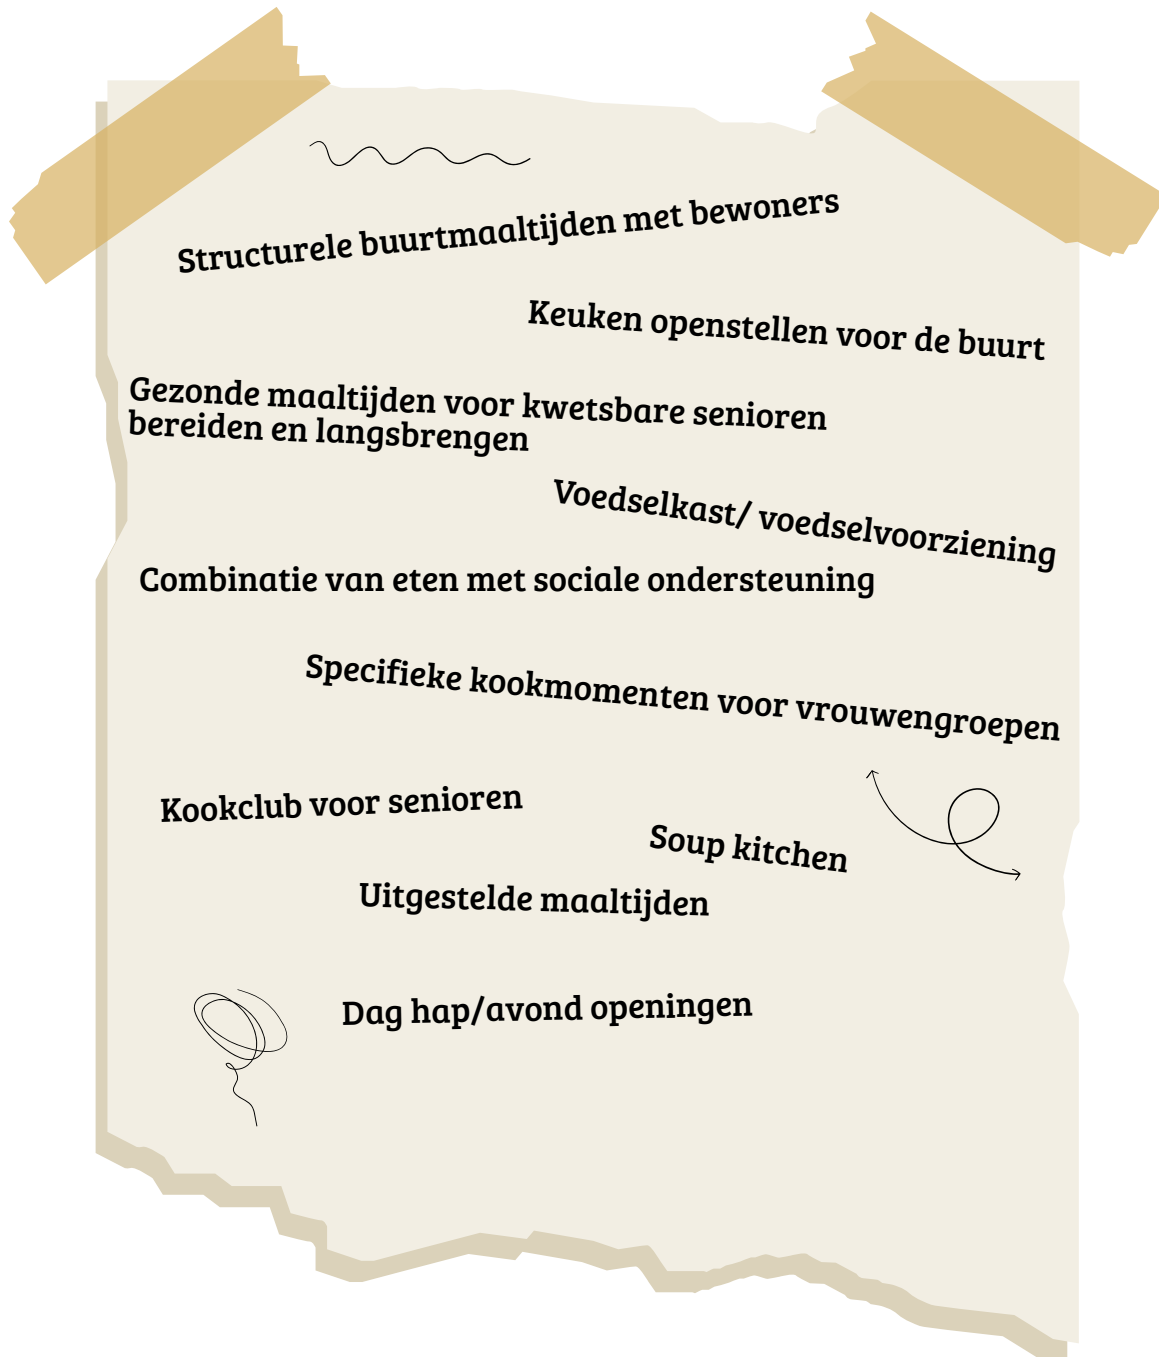 Structurele buurtmaaltijden met bewoners
Keuken openstellen voor de buurt
Gezonde maaltijden voor kwetsbare senioren
bereiden en langsbrengen
Voedselkast/ voedselvoorziening
Combinatie van eten met sociale ondersteuning
Specifieke kookmomenten voor vrouwengroepen
Kookclub voor senioren
Soup kitchen
Uitgestelde maaltijden
Dag hap/avond openingen